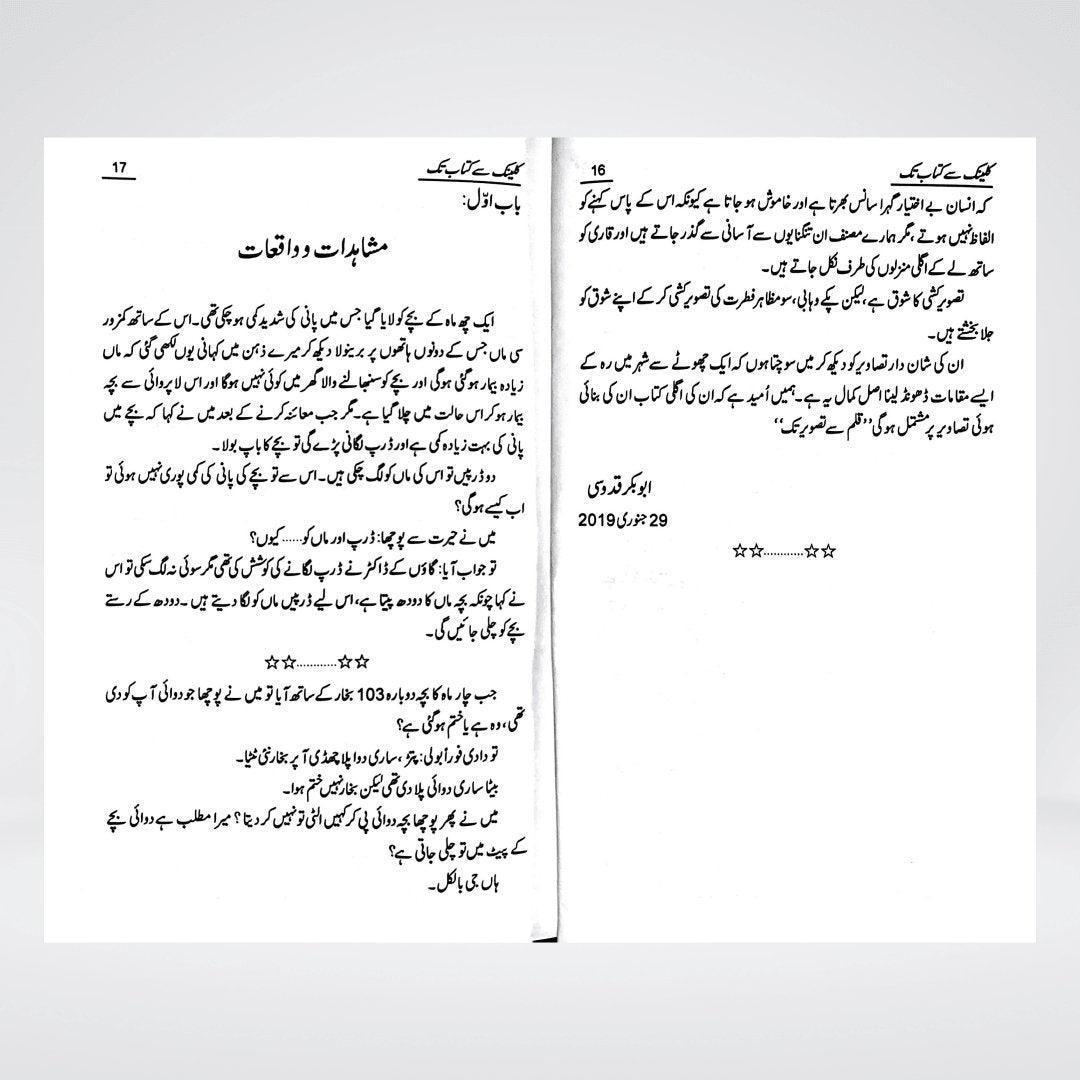 کلینک سے کتاب تک 16
کہ انسان بے اختیار گہرا سانس بھرتا ہے اور خاموش ہو جاتا ہے کیونکہ اس کے پاس کہنے کو
الفاظ نہیں ہوتے ، مگر ہمارے مصنف ان تنگنایوں سے آسانی سے گذر جاتے ہیں اور قاری کو
ساتھ لے کے اگلی منزلوں کی طرف نکل جاتے ہیں۔
تصویر کشی کا شوق ہے ، لیکن پکے وہابی ، سو مظاہر فطرت کی تصویر کشی کر کے اپنے شوق کو
جلا بخشتے ہیں۔
ان کی شان دار تصاویر کو دیکھ کر میں سوچتا ہوں کہ ایک چھوٹے سے شہر میں رہ کے
ایسے مقامات ڈھونڈ لینا اصل کمال یہ ہے۔ ہمیں اُمید ہے کہ ان کی اگلی کتاب ان کی بنائی
ہوئی تصاویر پر مشتمل ہو گی ’’قلم سے تصویر تک‘‘
ابوبکر قدوسی
29 جنوری 2019
☆☆............☆☆
کلینک سے کتاب تک 17
باب اوّل:
مشاہدات و واقعات
ایک چھ ماہ کے بچے کو لایا گیا جس میں پانی کی شدید کمی ہو چکی تھی۔ اس کے ساتھ کمزور
سی ماں جس کے دونوں ہاتھوں پر برینولا دیکھ کر میرے ذہن میں کہانی یوں لکھی گئی کہ ماں
زیادہ بیمار ہو گئی ہوگی اور بچے کو سنبھالنے والا گھر میں کوئی نہیں ہوگا اور اس لا پروائی سے بچہ
بیمار ہو کر اس حالت میں چلا گیا ہے۔ مگر جب معائنہ کرنے کے بعد میں نے کہا کہ بچے میں
پانی کی بہت زیادہ کمی ہے اور ڈرپ لگانی پڑے گی تو بچے کا باپ بولا۔
دو ڈرپیں تو اس کی ماں کو لگ چکی ہیں۔ اس سے تو بچے کی پانی کی کمی پوری نہیں ہوئی تو
اب کیسے ہوگی؟
میں نے حیرت سے پوچھا: ڈرپ اور ماں کو...... کیوں؟
تو جواب آیا: گاؤں کے ڈاکٹر نے ڈرپ لگانے کی کوشش کی تھی مگر سوئی نہ لگ سکی تو اس
نے کہا چونکہ بچہ ماں کا دودھ پیتا ہے، اس لیے ڈرپیں ماں کو لگا دیتے ہیں۔ دودھ کے رستے
بچے کو چلی جائیں گی۔
☆☆............☆☆
جب چار ماہ کا بچہ دوبارہ 103 بخار کے ساتھ آیا تو میں نے پوچھا جو دوائی آپ کو دی
تھی، وہ ہے یا ختم ہوگئی ہے؟
تو دادی فوراً بولی: پتر ، ساری دوا پلا چھڈی آ پر بخار نئی ٹٹیا۔
بیٹا ساری دوائی پلا دی تھی لیکن بخار نہیں ختم ہوا۔
میں نے پھر پوچھا بچہ دوائی پی کر کہیں الٹی تو نہیں کر دیتا؟ میرا مطلب ہے دوائی بچے
کے پیٹ میں تو چلی جاتی ہے؟
ہاں جی بالکل۔